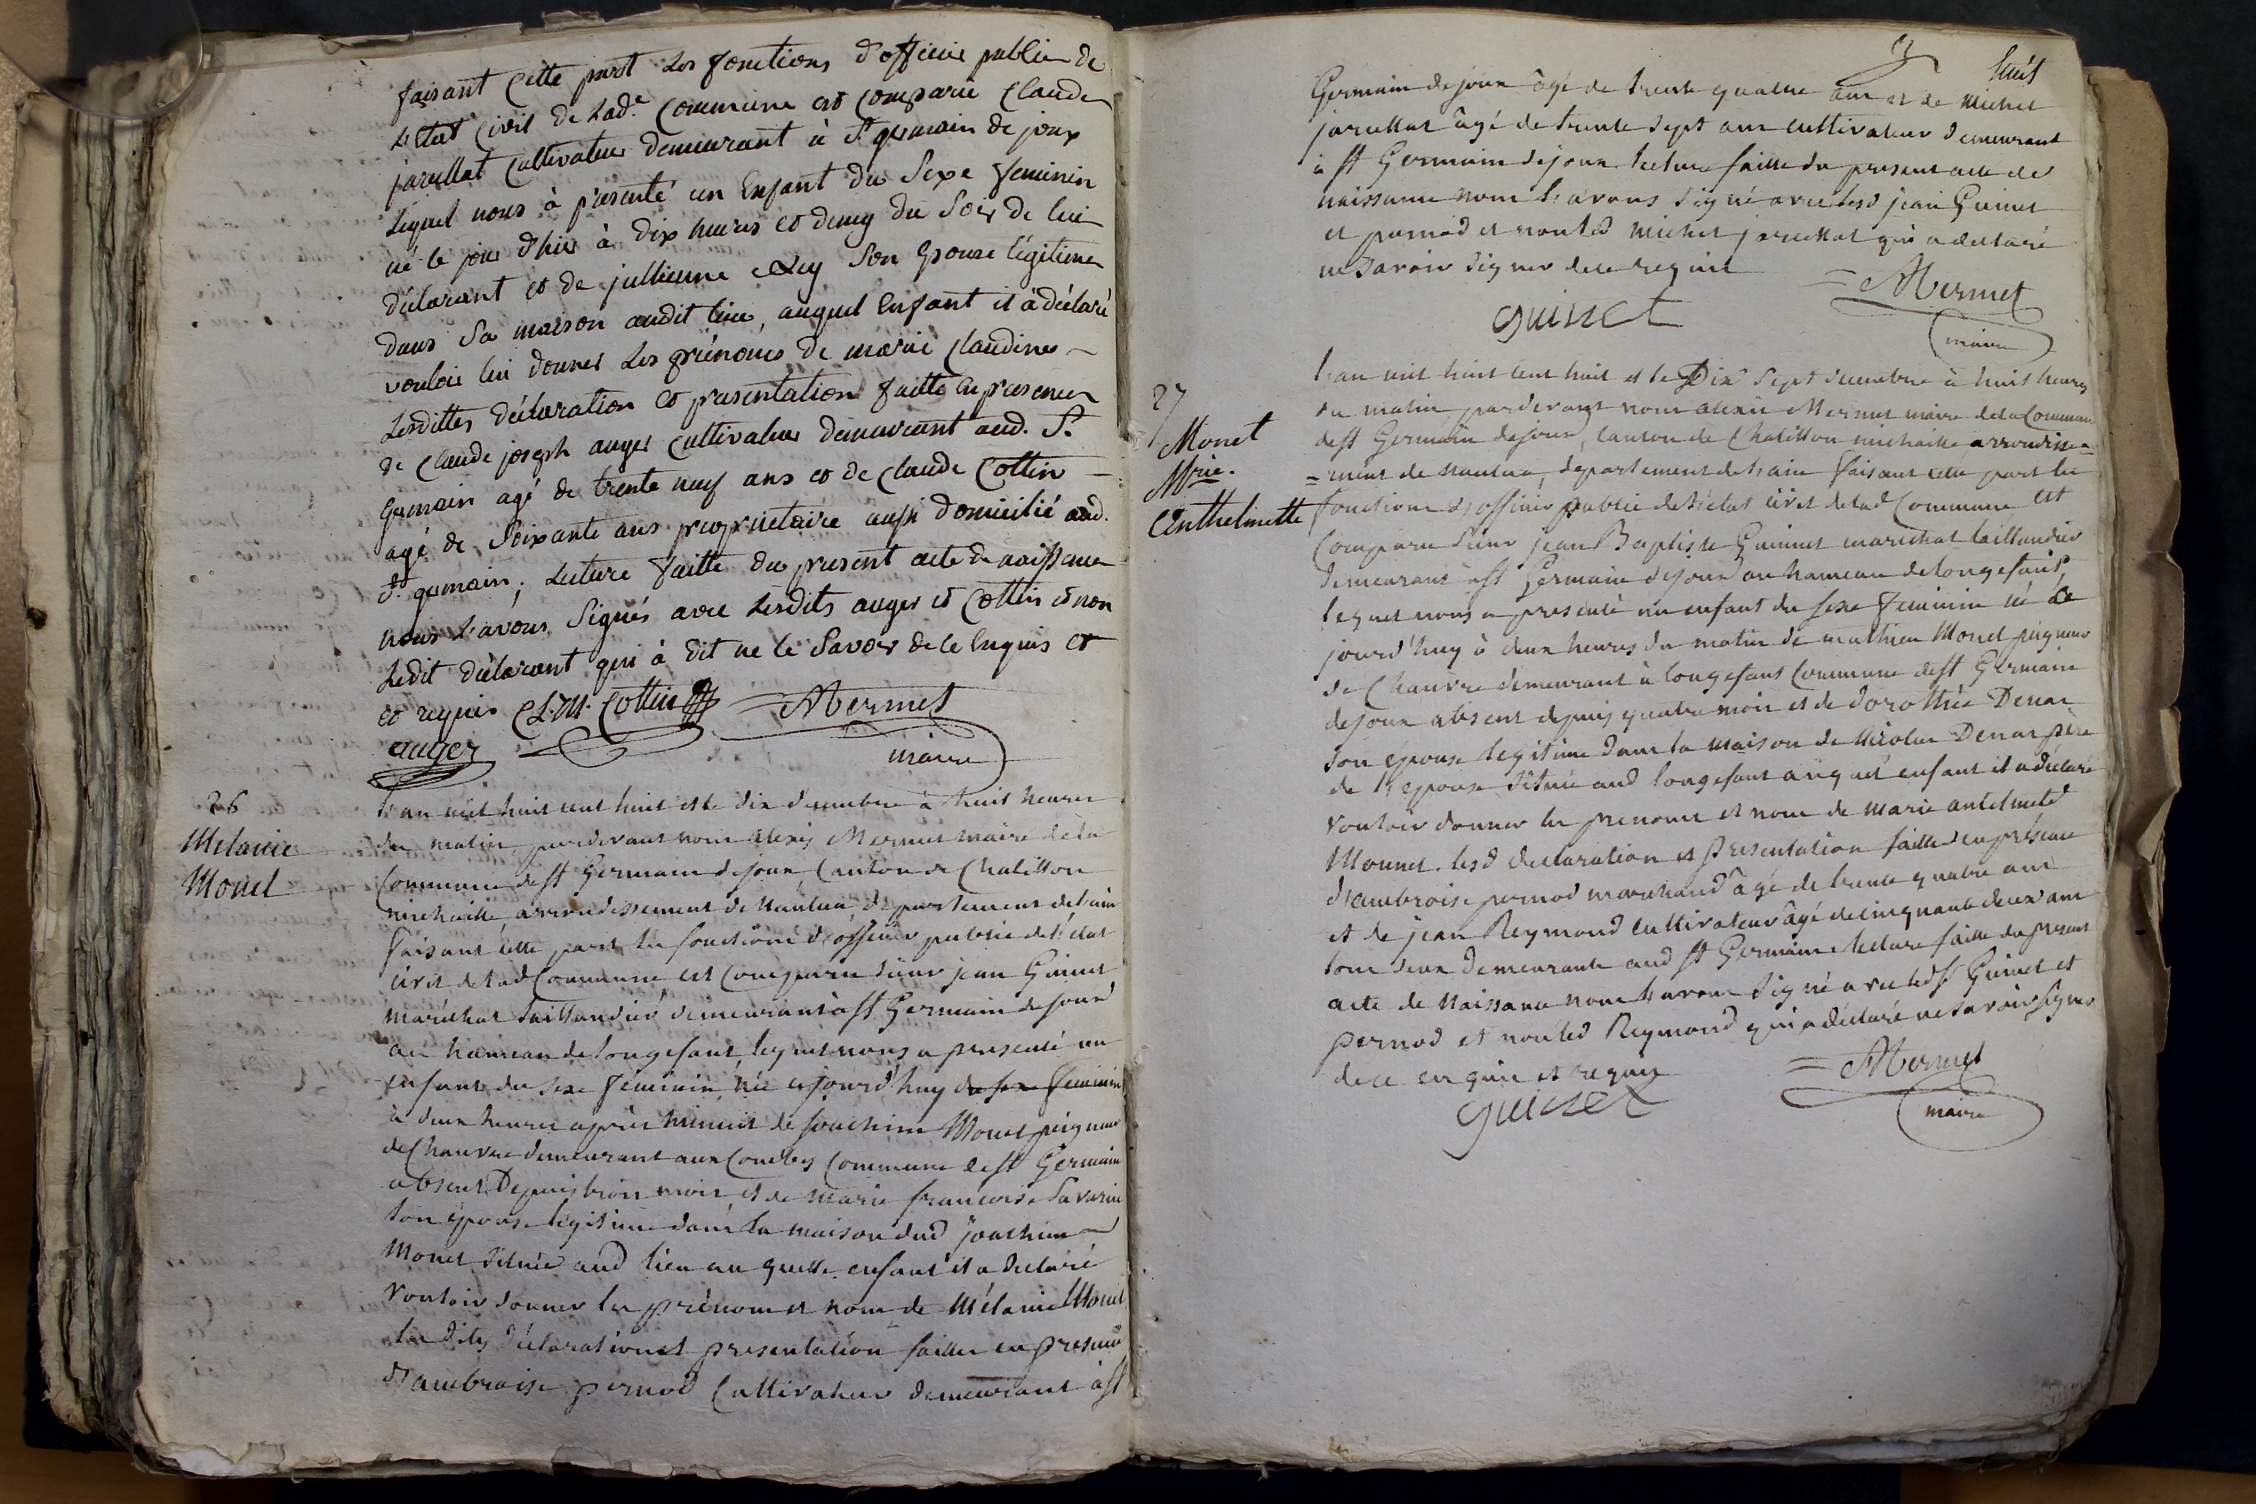 faisant cette part les fonctions d'officier public de
l'Etat Civil de lad.e Commune est comparu Claude
jarullat Cultivateur demeurant à St germain de joux
lequel nous à présenté un Enfant du Sexe feminin
né le jour d'hier à dix heures et demy du Soir de lui
déclarant et de jullienne Rey Son Epouse légitime
dans Sa maison audit lieu, auquel Enfant il à déclaré
vouloir lui donner les prénoms de marie Claudine
Lesdittes déclaration et présentation faitte en présence
de Claude joseph auger Cultivateur demeurant aud. St
Germain agé de trente neuf ans et de Claude Cottin
agé de Soixante ans proprietaire aussi domicilié aud.
St germain; Lecture faitte du present acte de naissance
nous l'avons Signés avec lesdits auger et Cottin et non
ledit déclarant qui à dit ne le Savoir de ce Enquis et
et requis Cl. M. Cottin AMermet
auger maire
26
Melanie
Monet
l'an mil huit cent huit et le dix decembre à huit heures
du matin, pardevant nous alexis Mermet maire de la
Commune de St Germain de joux Canton de Chatillon
michaille, arrondissement de Nantua, département de l'ain
faisant cette part les fonctions d'officier public de l'état
civil de lad Commune, est Comparu Sieur jean Guinet
maréchal taillandier demeurant à St Germain de joux
au hameau de longefant, lequel nous a presenté un
enfant du sexe feminin, née ce jourd'huy du sexe feminin
à deux heures après minuit de joachim Monet peigneur
de Chanvre demeurant aux Combes Commune de St Germain
absent Depuis trois mois et de marie francoise Savarin
son épouse légitime dans la maison dud joachim
Monet située aud lieu au quelle enfant il a déclaré
Vouloir donner les prénom et nom de Mélanie Monet
les dites déclaration et presentation faittes en presence
d'ambroise pernod Cultivateur demeurant à St
huit
Germain de joux âgé de trente quatre ans et de Michel
jarullat âgé de trente sept ans cultivateur demeurant
à St Germain de joux lecture faitte du present acte de
naissance nous l'avons signé avec lesd jean Guinet
et pernod et non led Michel jarullat qui a declaré
ne savoir signer de ce requis
AMermet
guinet
maire
27
Monet
Mrie.
Enthelmette
l'an mil huit cent huit et le Dix Sept decembre à huit heures
du matin, pardevant nous alexis Mermet maire de la Commune
de St Germain de joux, Canton de Chatillon michaille, arrondisse=
=ment de Nantua, département de l'ain faisant cette part les
fonctions d'officier public de l'état civil de lad Commune est
Comparu Sieur jean Baptiste Guinet marechal taillandier
demeurant à St Germain de joux au hameau de longefant,
lequel nous a presenté un enfant du sexe feminin né ce
jourd'huy à deux heures du matin de mathieu Monet peigneur
de Chanvre demeurant à longefant Commune de St Germain
de joux absent depuis quatre mois et de dorothée Denar
son épouse legitime dans la maison de Nicolas Denar père
de l'epouse située aud longefant auquel enfant il a déclaré
Vouloir donner les prenoms et nom de Marie antelmete
Monnet. lesd declaration et presentation faittes en présence
d'ambroise pernod marchand âgé de trente quatre ans
et de jean Reymond Cultivateur âgé de cinquante deux ans
tous deux demeurants aud St Germain. lecture faitte du present
acte de Naissance nous l'avons signé avec lesd Sr Guinet et
pernod et non led Reymond qui a déclaré ne savoir signer
de ce enquis et requis
AMermet
guinet
maire